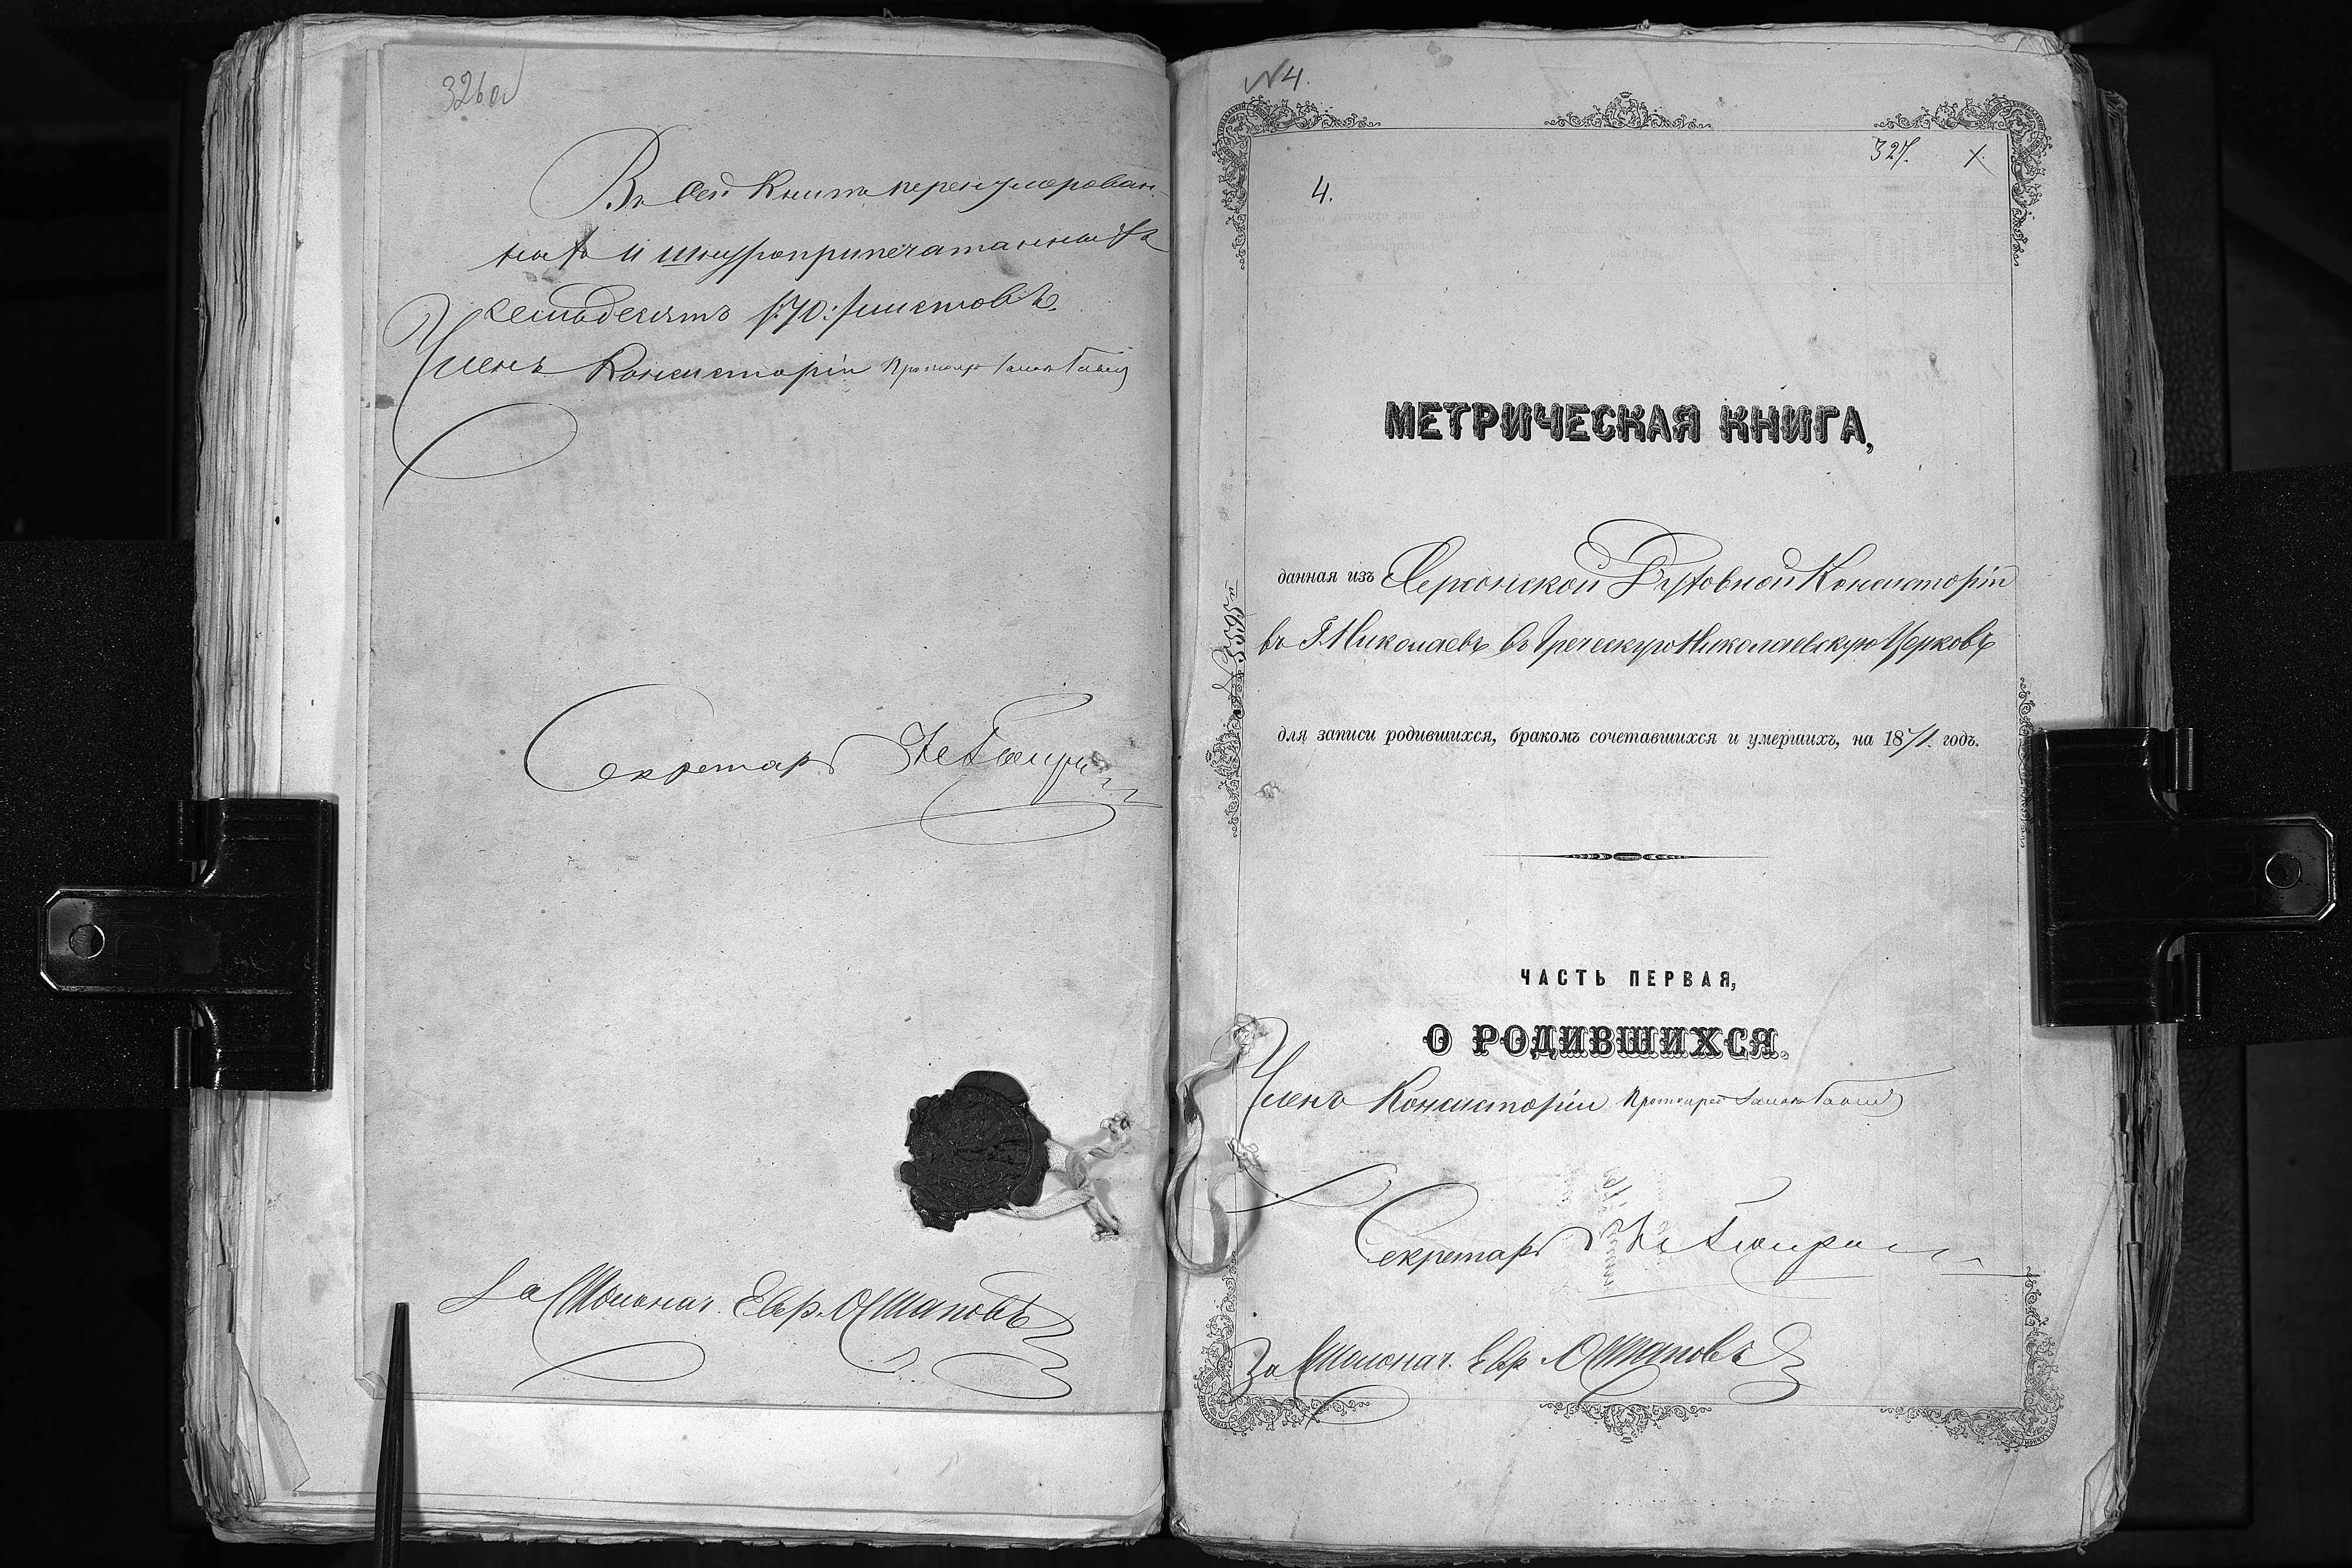 326 об
Въ сей Книгѣ перенумерован-
ныхъ и шнуроприпечатанныхъ
семьдесятъ /:70:/ листовъ.
Членъ Консисторіи
Секретарь
За Столонач. Евр. Остаповъ
№ 4.
327. X.
4.
МЕТРИЧЕСКАЯ КНИГА,
данная изъ Херсонской Духовной Консисторіи
въ Г. Николаевъ въ Греческую Николаевскую Церковь
для записи родившихся, бракомъ сочетавшихся и умершихъ, на 1871. годъ.
ЧАСТЬ ПЕРВАЯ,
О РОДИВШИХСЯ.
Членъ Консисторіи
Секретарь
За Столонач. Евр. Остаповъ